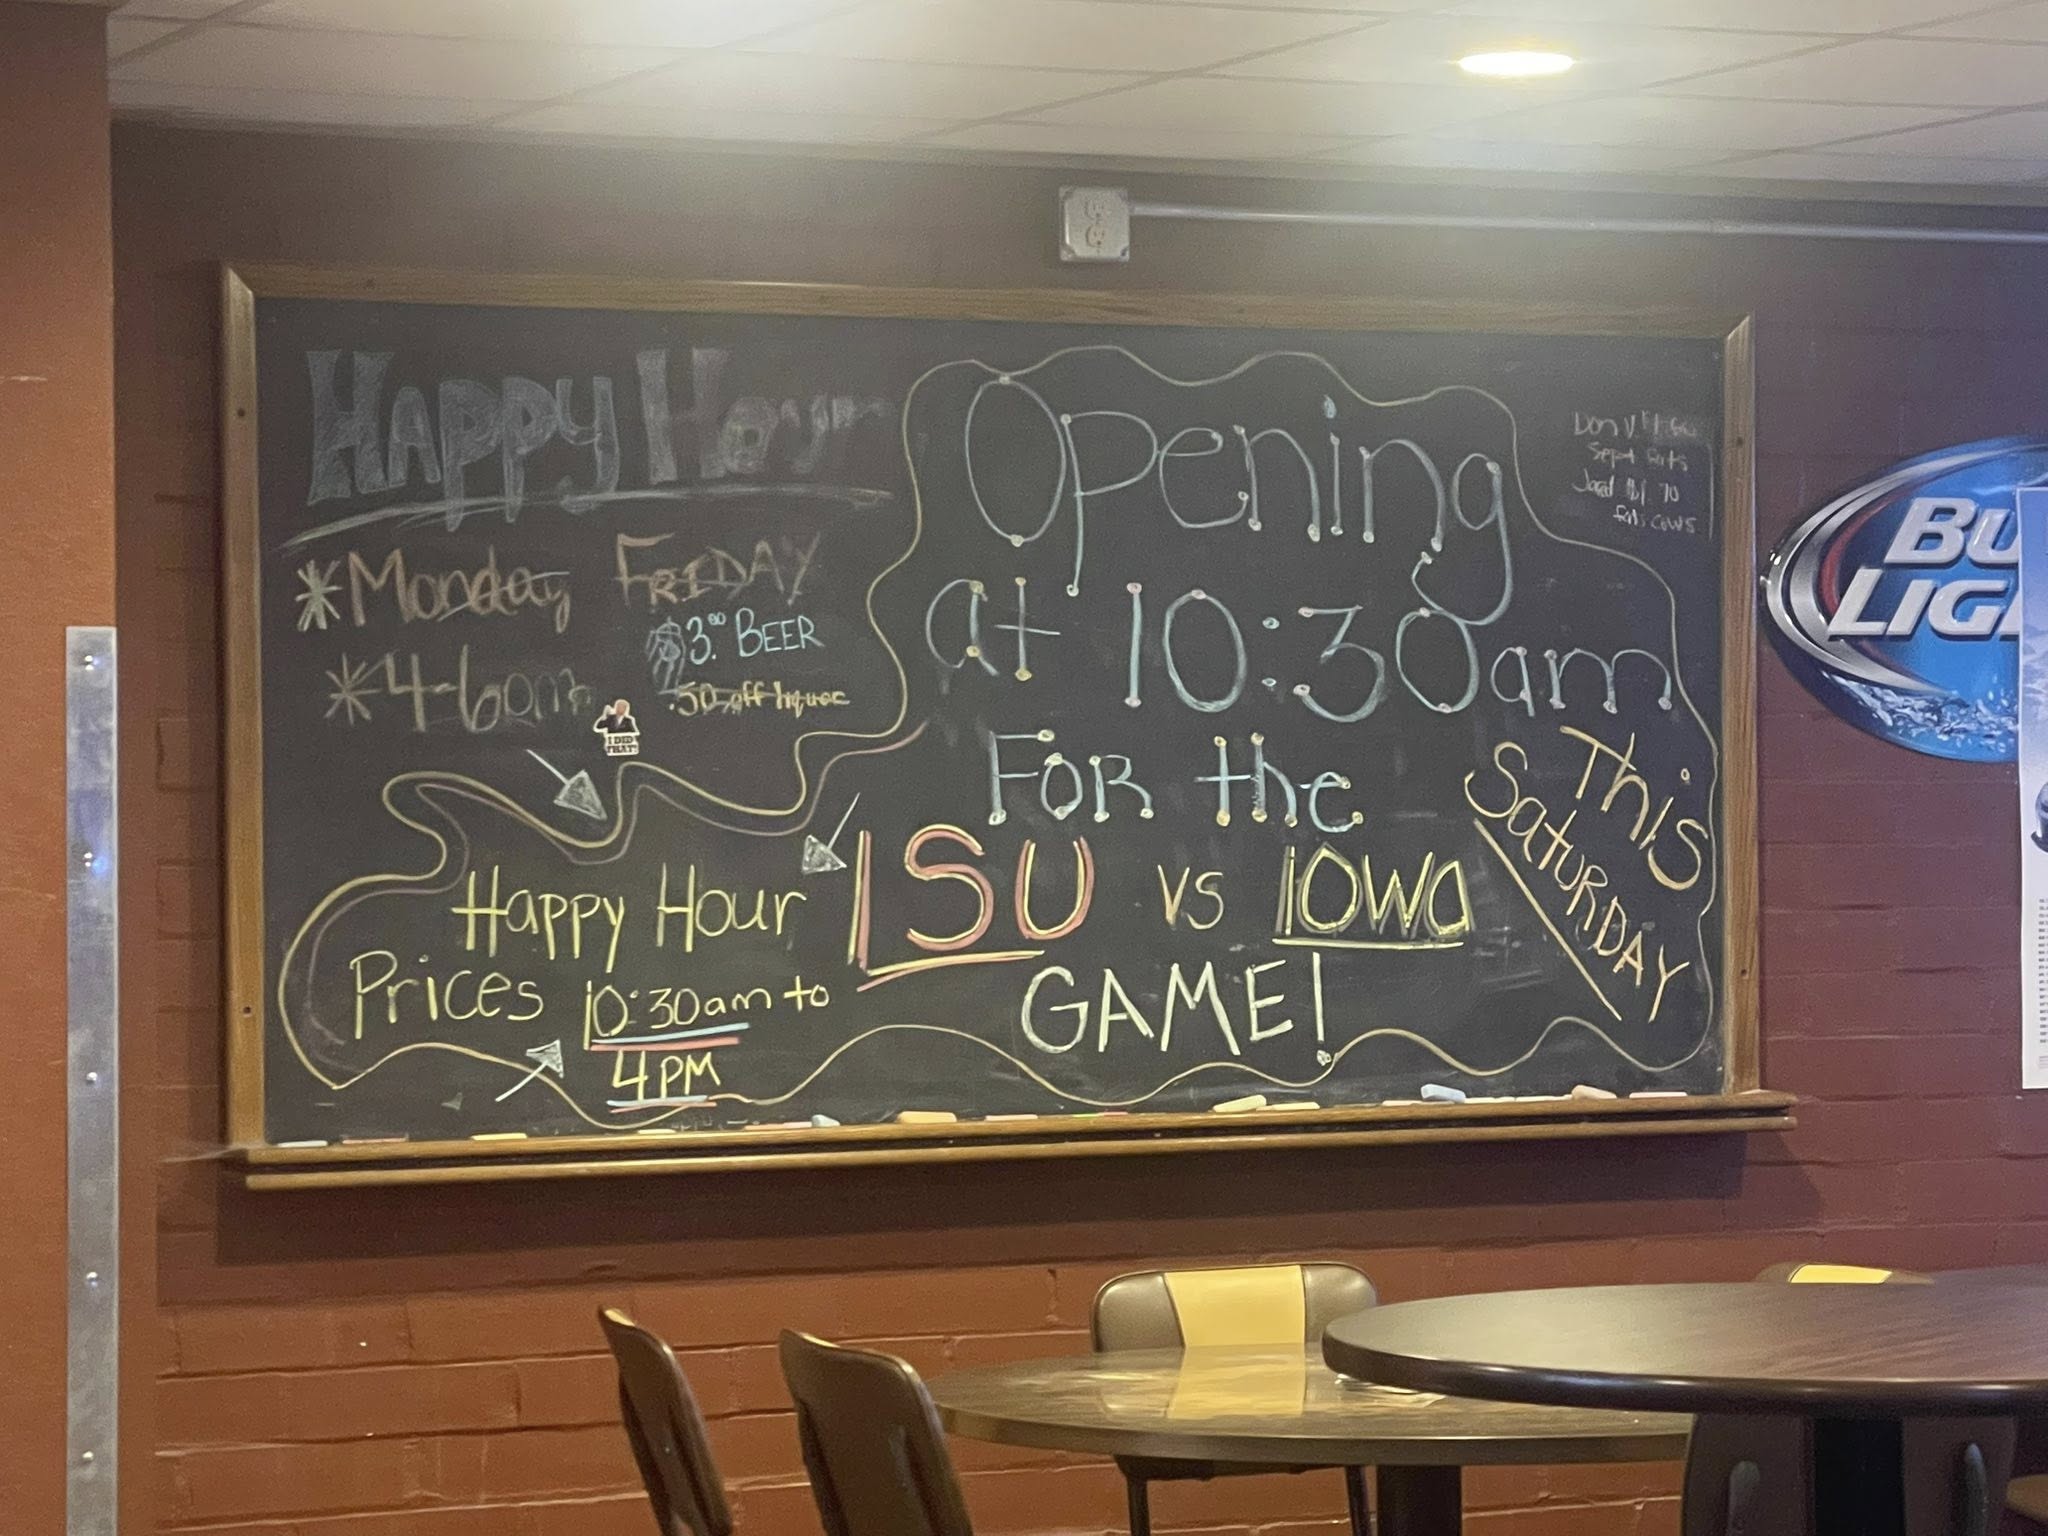 Happy Hour
*Monday Friday
$3.00 BEER
*4-6pm
.50 off liquor
I DID
THAT!
Opening
at 10:30am
For the
LSU vs IOWA
GAME!
This
Saturday
Happy Hour
Prices 10:30am to
4PM
Don V.
BU
LIG